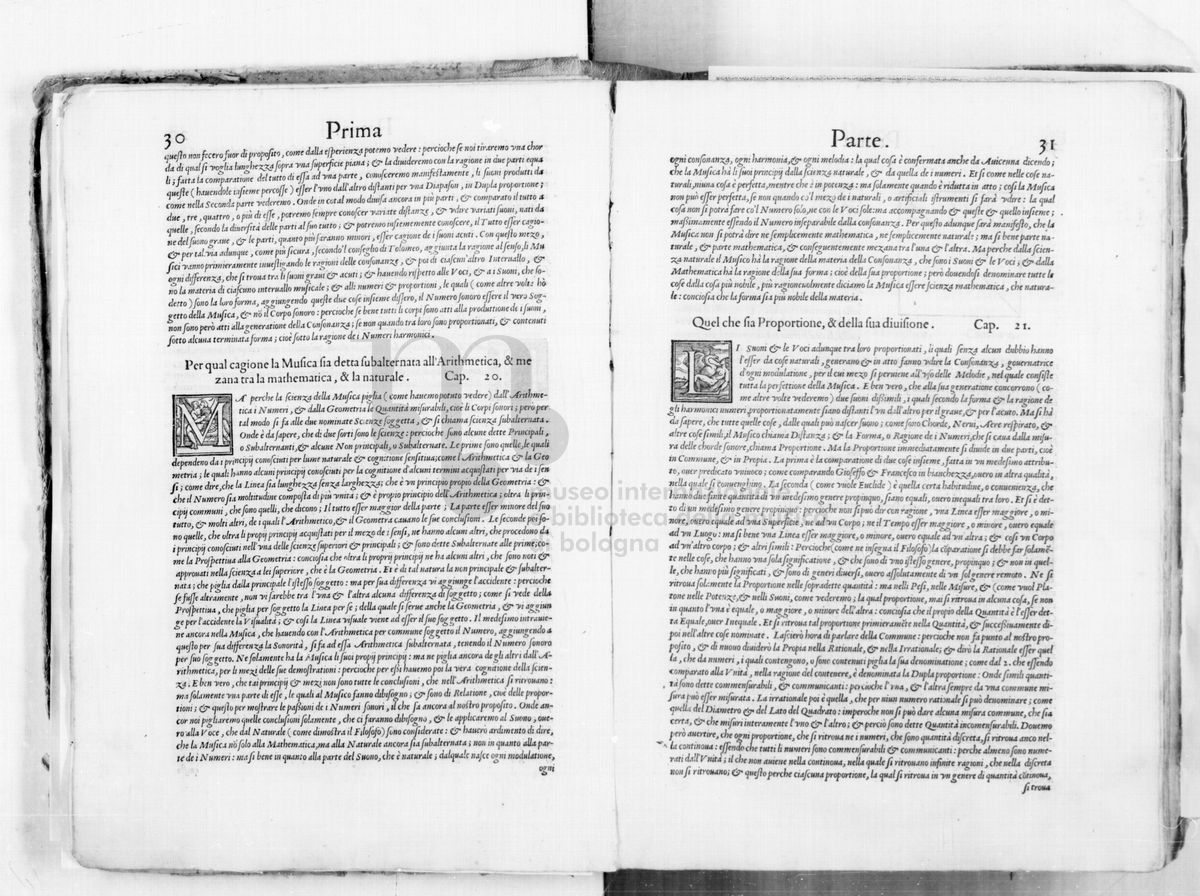 30 Prima
questo non fecero fuor di proposito, come dalla esperienza potemo vedere: percioche se noi tiraremo vna chor
da di qual si voglia lunghezza sopra vna superficie piana; & la diuideremo con la ragione in due parti equa
li; fatta la comparatione del tutto di essa ad vna parte, conosceremo manifestamente, li suoni produtti da
queste (hauendole insieme percosse) esser l'vno dall'altro distanti per vna Diapason, in Dupla proportione;
come nella Seconda parte vederemo. Onde in cotal modo diuisa ancora in più parti, & comparato il tutto a
due, tre, quattro, o più di esse, potremo sempre conoscer variate distanze, & vdire variati suoni, nati da
quelle, secondo la diuersità delle parti al suo tutto; & potremo insiememente conoscere, il Tutto esser cagio-
ne del suono graue, & le parti, quanto più saranno minori, esser cagione de i suoni acuti. Con questo mezo,
& per tal via adunque, come più sicura, secondo'l conseglio di Tolomeo, aggiunta la ragione al senso, li Mu
sici vanno primieramente inuestigando le ragioni delle consonanze, & poi di ciascun'altro Interuallo, &
ogni differenza, che si troua tra li suoni graui & acuti; & hauendo rispetto alle Voci, & a i Suoni, che so-
no la materia di ciascuno interuallo musicale; & alli numeri & proportioni, le quali (come altre volte hò
detto) sono la loro forma, aggiungendo queste due cose insieme dissero, il Numero sonoro essere il vero Sog-
getto della Musica, & nõ il Corpo sonoro: percioche se bene tutti li corpi sono atti alla produtione de i suoni,
non sono però atti alla generatione della Consonanza; se non quando tra loro sono proportionati, & contenuti
sotto alcuna terminata forma; cioè sotto la ragione de i Numeri harmonici.
Per qual cagione la Musica sia detta subalternata all'Arithmetica, & me
zana tra la mathematica, & la naturale. Cap. 20.
MA perche la scienza della Musica piglia (come hauemo potuto vedere) dall'Arithme-
tica i Numeri, & dalla Geometria le Quantità misurabili, cioè li Corpi sonori; però per
tal modo si fa alle due nominate Scienze soggetta, & si chiama scienza subalternata.
Onde è da sapere, che di due sorti sono le scienze: percioche sono alcune dette Principali,
o Subalternanti, & alcune Non principali, o Subalternate. Le prime sono quelle, le quali
dependeno da i principij conosciuti per lume naturale & cognitione sensitiua; come l'Arithmetica & la Geo
metria; le quali hanno alcuni principij conosciuti per la cognitione di alcuni termini acquistati per via de i sen
si; come dire, che la Linea sia lunghezza senza larghezza; che è vn principio propio della Geometria: &
che il Numero sia moltitudine composta di più vnità; & è propio principio dell'Arithmetica; oltra li prin-
cipij communi, che sono quelli, che dicono; Il tutto esser maggior della parte; La parte esser minore del suo
tutto, & molti altri, de i quali l'Arithmetico, & il Geometra cauano le sue conclusioni. Le seconde poi so-
no quelle, che oltra li propij principij acquistati per il mezo de i sensi, ne hanno alcuni altri, che procedono da
i principij conosciuti nell'vna delle scienze superiori & principali; & sono dette Subalternate alle prime; co-
me la Prospettiua alla Geometria: conciosia che oltra li proprij principij ne ha alcuni altri, che sono noti &
approuati nella scienza a lei superiore, che è la Geometria. Et è di tal natura la non principale & subalter-
nata; che piglia dalla principale l'istesso soggetto: ma per sua differenza vi aggiunge l'accidente: percioche
se fusse altramente, non vi sarebbe tra l'vna & l'altra alcuna differenza di soggetto; come si vede della
Prospettiua, che piglia per soggetto la Linea per se; della quale si serue anche la Geometria, & vi aggiun
ge per l'accidente la Visualità; & cosi la Linea visuale viene ad esser il suo soggetto. Il medesimo intraue-
ne ancora nella Musica, che hauendo con l'Arithmetica per commune soggetto il Numero, aggiungendo a
questo per sua differenza la Sonorità, si fa ad essa Arithmetica subalternata, tenendo il Numero sonoro
per suo soggetto. Ne solamente ha la Musica li suoi proprij principij: ma ne piglia ancora de gli altri dall'A-
rithmetica, per li mezi delle sue demostrationi: percioche per essi hauemo poi la vera cognitione della scien-
za. E ben vero, che tai principij & mezi non sono tutte le conclusioni, che nell'Arithmetica si ritrouano:
ma solamente vna parte di esse, le quali al Musico fanno dibisogno; & sono di Relatione, cioè delle propor-
tioni; & questo per mostrare le passioni de i Numeri sonori, il che fa ancora al nostro proposito. Onde an-
cor noi pigliaremo quelle conclusioni solamente, che ci faranno dibisogno, & le applicaremo al Suono, oue-
ro alla Voce, che dal Naturale (come dimostra il Filosofo) sono considerate: & hauerò ardimento di dire,
che la Musica nõ solo alla Mathematica, ma alla Naturale ancora sia subalternata; non in quanto alla par-
te de i Numeri: ma si bene in quanto alla parte del Suono, che è naturale; dalquale nasce ogni modulatione,
ogni
Parte. 31
ogni consonanza, ogni harmonia, & ogni melodia: la qual cosa è confermata anche da Auicenna dicendo;
che la Musica hà li suoi principij dalla scienza naturale, & da quella de i numeri. Et si come nelle cose na-
turali, niuna cosa è perfetta, mentre che è in potenza: ma solamente quando è ridutta in atto; cosi la Musica
non può esser perfetta, se non quando co'l mezo de i naturali, o artificiali istrumenti si farà vdire: la qual
cosa non si potrà fare co'l Numero solo, ne con le Voci sole: ma accompagnando & queste & quello insieme;
massimamente essendo il Numero inseparabile dalla consonanza. Per questo adunque sarà manifesto, che la
Musica non si potrà dire ne semplicemente mathematica, ne semplicemente naturale; ma si bene parte na-
turale, & parte mathematica, & conseguentemente mezana tra l'una & l'altra. Ma perche dalla scien-
za naturale il Musico hà la ragione della materia della Consonanza, che sono i Suoni & le Voci, & dalla
Mathematica hà la ragione della sua forma; cioè della sua proportione; però douendosi denominare tutte le
cose dalla cosa più nobile, più ragioneuolmente diciamo la Musica essere scienza mathematica, che natura-
le: conciosia che la forma sia più nobile della materia.
Quel che sia Proportione, & della sua diuisione. Cap. 21.
LI Suoni & le Voci adunque tra loro proportionati, li quali senza alcun dubbio hanno
l'esser da cose naturali, generano & in atto fanno vdire la Consonanza, gouernatrice
d'ogni modulatione, per il cui mezo si peruiene all'vso delle Melodie, nel quale consiste
tutta la perfettione della Musica. E ben vero, che alla sua generatione concorrono (co
me altre volte vederemo) due suoni dissimili, i quali secondo la forma & la ragione de
gli harmonici numeri, proportionatamente siano distanti l'vn dall'altro per il graue, & per l'acuto. Ma si hà
da sapere, che tutte quelle cose, dalle quali può nascer suono; come sono Chorde, Nerui, Aere respirato, &
altre cose simili, il Musico chiama Distanza; & la Forma, o Ragione de i Numeri, che si caua dalla misu-
ra delle chorde sonore, chiama Proportione. Ma la Proportione immediatamente si diuide in due parti, cioè
in Commune, & in Propia. La prima è la comparatione di due cose insieme, fatta in vn medesimo attribu-
to, ouer predicato vniuoco; come comparando Gioseffo & Francesco in bianchezza, ouero in altra qualità,
nella quale si conuenghino. La seconda (come vuole Euclide) è quella certa habitudine, o conuenienza, che
hanno due finite quantità di vn medesimo genere propinquo, siano equali, ouero inequali tra loro. Et si è det-
to di un medesimo genere propinquo: percioche non si può dir con ragione, vna Linea esser maggiore, o mi-
nore, ouero equale ad vna Superficie, ne ad vn Corpo; ne il Tempo esser maggiore, o minore, ouero equale
ad vn Luogo: ma si bene vna Linea esser maggiore, o minore, ouero equale ad vn'altra; & cosi vn Corpo
ad vn'altro corpo; & altri simili: Percioche (come ne insegna il Filosofo) la cõparatione si debbe far solamẽ-
te nelle cose, che hanno vna sola significatione, & che sono di vno istesso genere, propinquo; & non in quel-
le, che hanno più significati, & sono di generi diuersi, ouero assolutamente di vn sol genere remoto. Ne si
ritroua solamente la Proportione nelle sopradette quantità: ma nelli Pesi, nelle Misure, & (come vuol Pla-
tone nelle Potenze, & nelli Suoni, come vederemo; la qual proportione, mai si ritroua in alcuna cosa, se non
in quanto l'vna è equale, o maggiore, o minore dell'altra: conciosia che il propio della Quantità è l'esser det-
ta Equale, ouer Inequale. Et si ritroua tal proportione primieramẽte nella Quantità, & successiuamente di-
poi nell'altre cose nominate. Lascierò hora di parlare della Commune: percioche non fa punto al nostro pro-
posito, & di nuouo diuiderò la Propia nella Rationale, & nella Irrationale; & dirò la Rationale esser quel
la, che da numeri, i quali contengono, o sono contenuti piglia la sua denominatione; come dal 2. che essendo
comparato alla Vnità, nella ragione del contenere, è denominata la Dupla proportione: Onde simili quanti-
tà sono dette commensurabili, & communicanti: percioche l'vna, & l'altra sempre da vna commune mi-
sura può esser misurata. La irrationale poi è quella, che per niun numero rationale si può denominare; come
quella del Diametro & del Lato del Quadrato: imperoche non si può dare alcuna misura commune, che sia
certa, & che misuri interamente l'vno & l'altro; & perciò sono dette Quantità incommensurabili. Douemo
però auertire, che ogni proportione, che si ritroua ne i numeri, che sono quantità discreta, si ritroua anco nel-
la continoua: essendo che tutti li numeri sono commensurabili & communicanti: perche almeno sono nume-
rati dall'Vnità; il che non auiene nella continoua, nella quale si ritrouano infinite ragioni, che nella discreta
non si ritrouano; & questo perche ciascuna proportione, la qual si ritroua in vn genere di quantità cõtinoua,
si troua
museo internazionale
biblioteca della musica
bologna